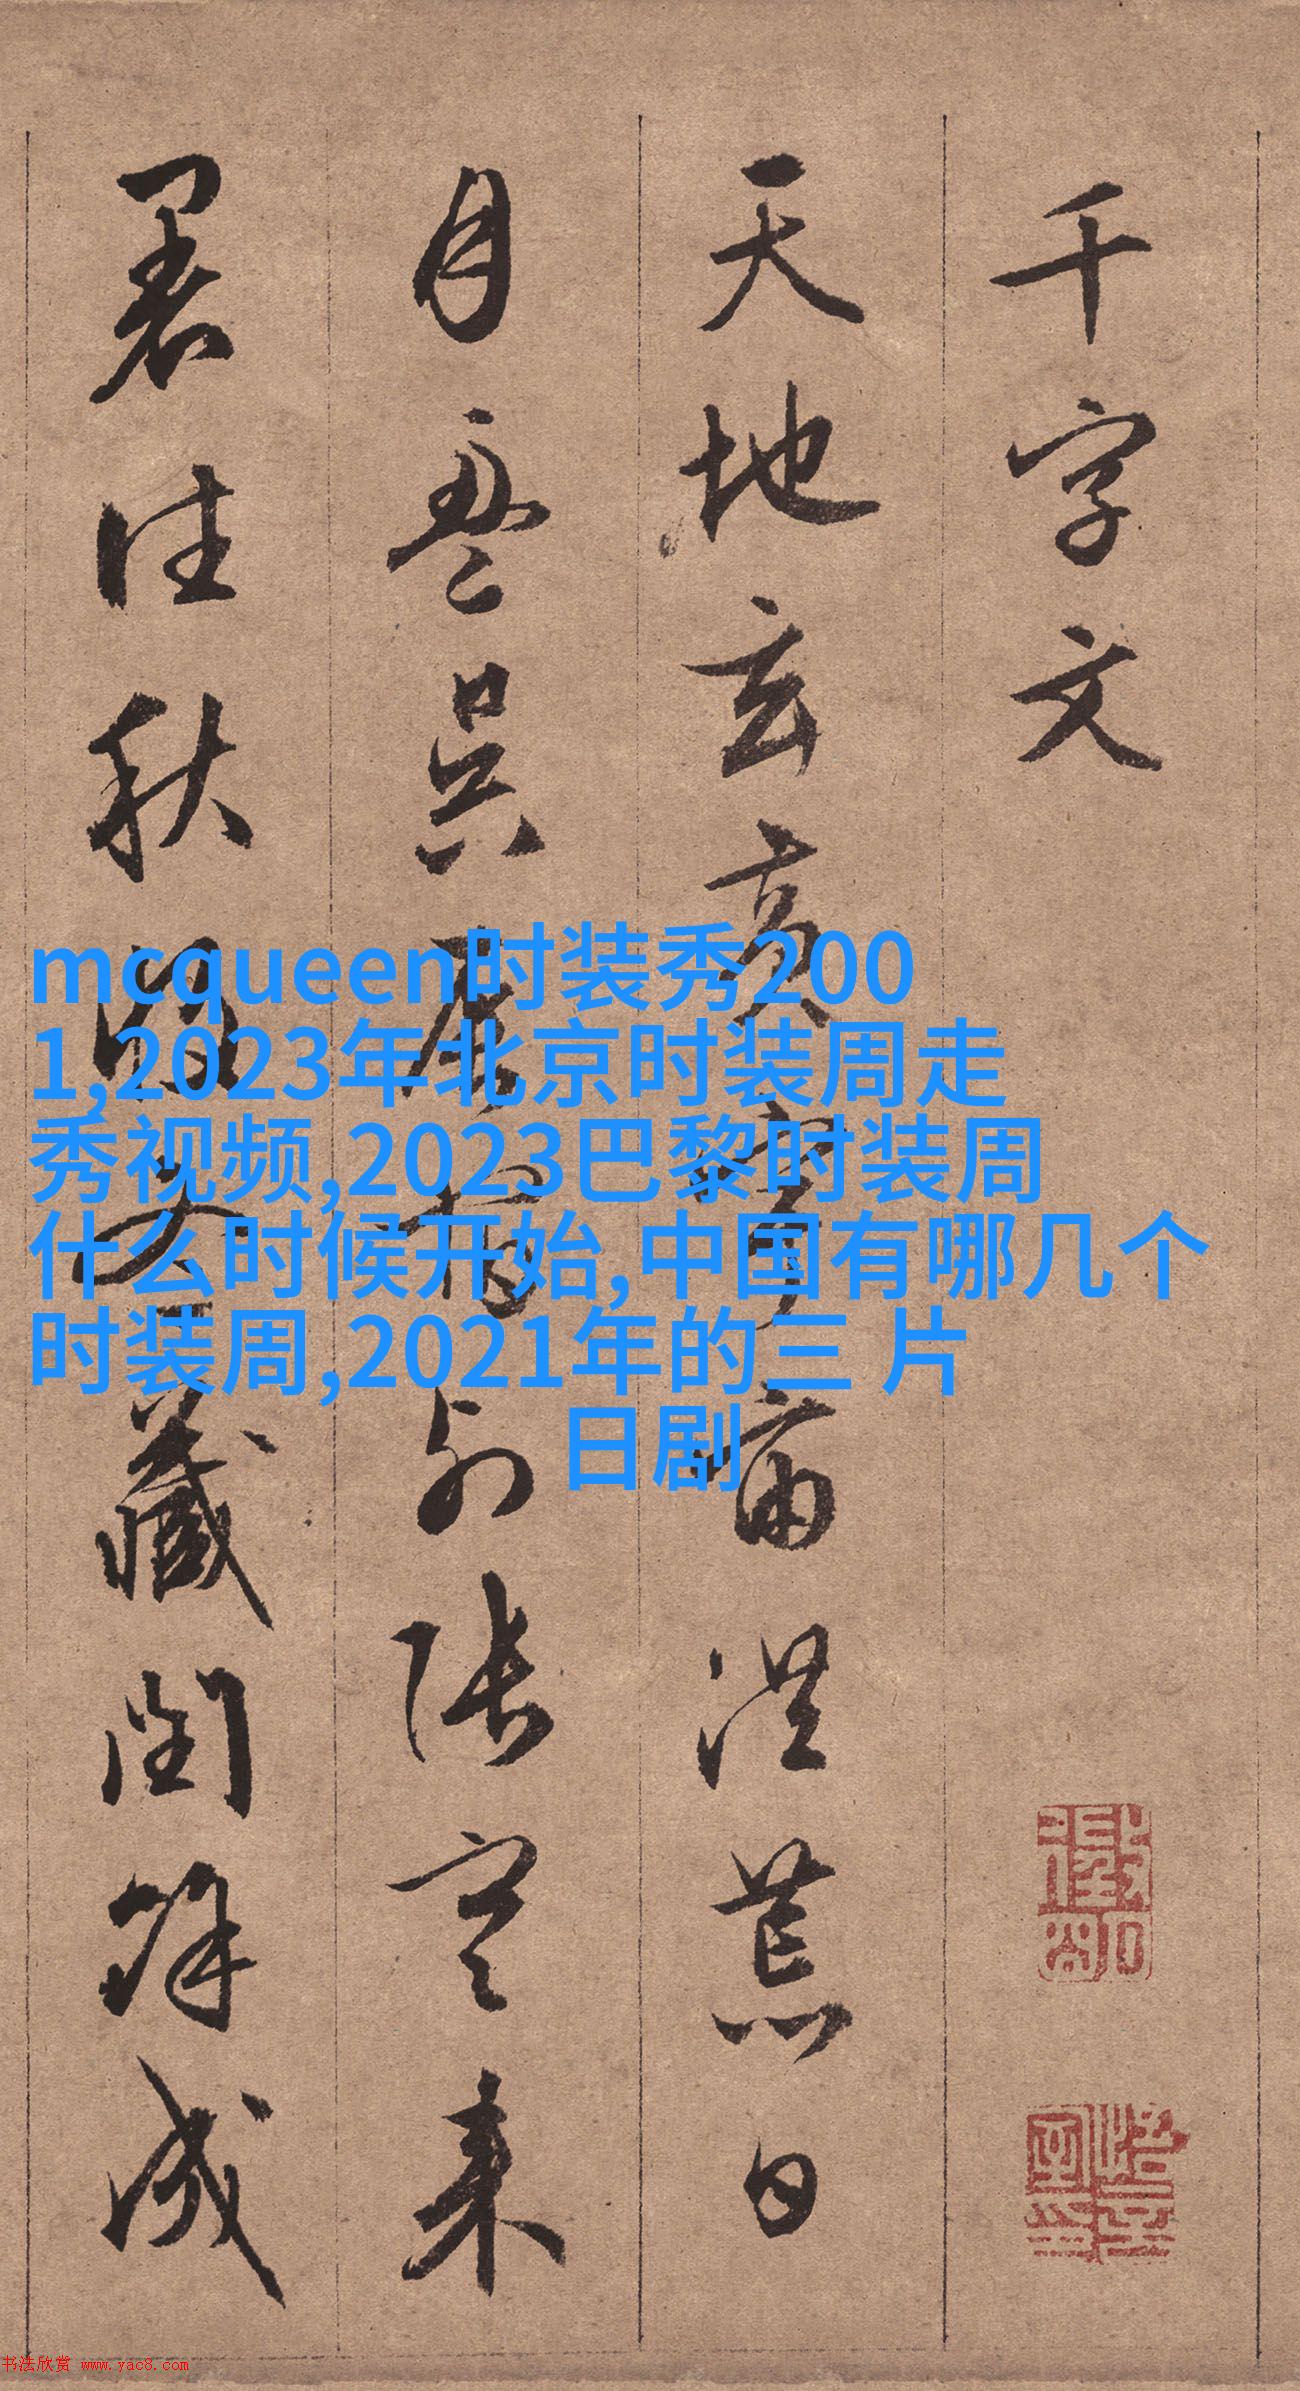 千字文
天地玄黄宇宙洪荒日
月盈昃辰宿列張寒来
暑往秋收冬藏閏餘成
mcqueen时装秀200
1,2023年北京时装周走
秀视频,2023巴黎时装周
什么时候开始,中国有哪几个
时装周,2021年的三 片
日剧
书法欣赏 www.yac8.com